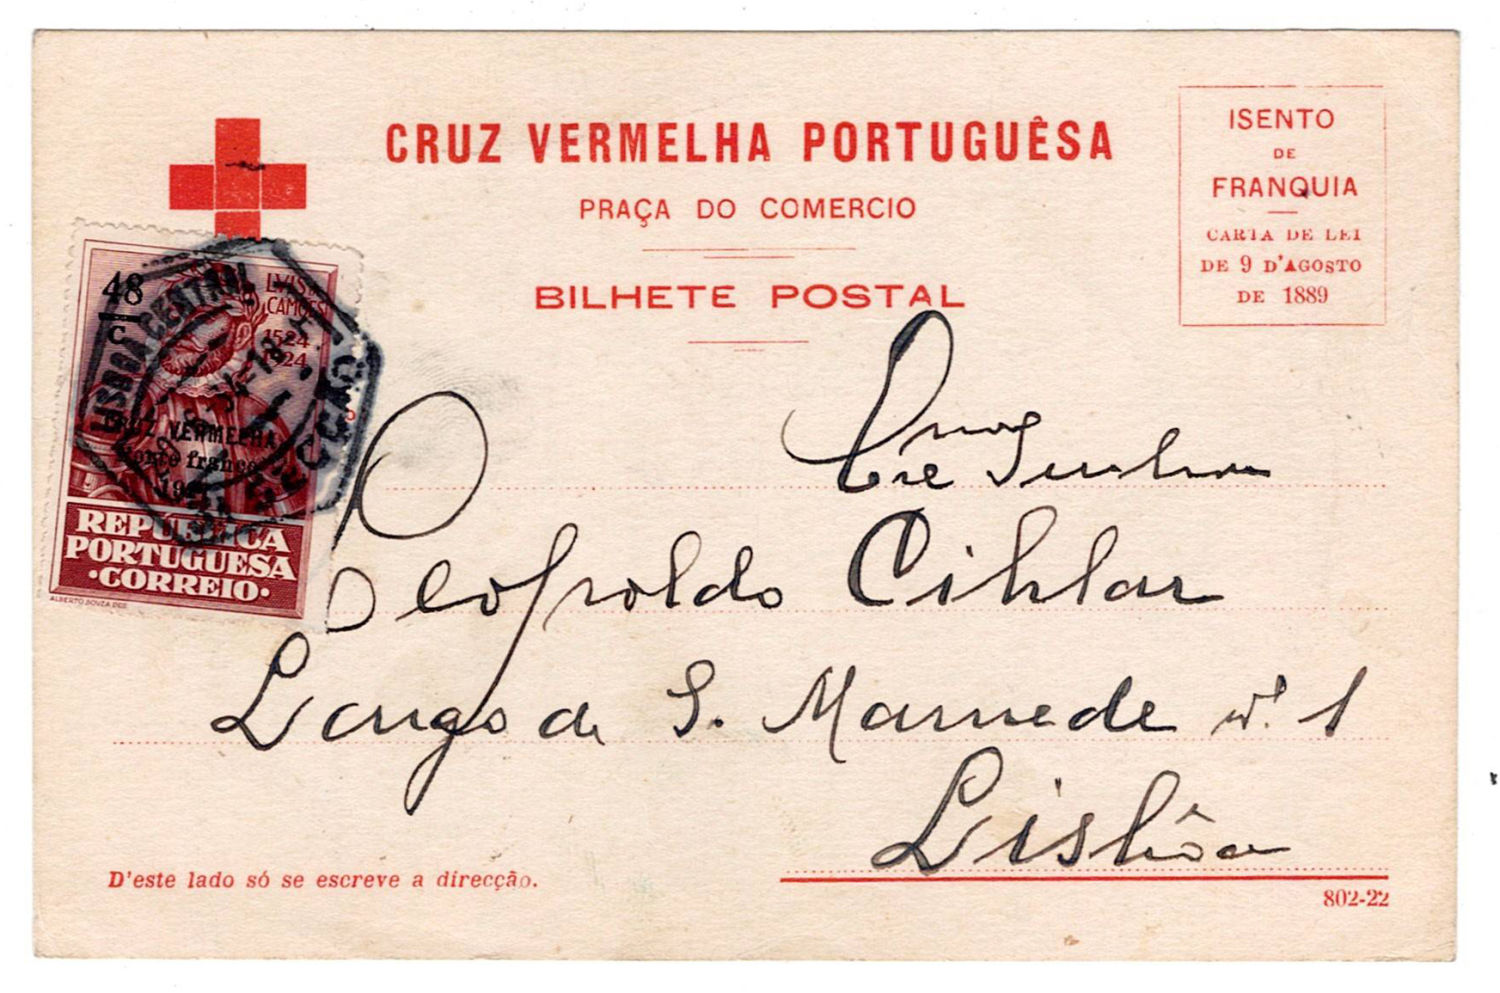 CRUZ VERMELHA PORTUGUÊSA
PRAÇA DO COMERCIO
BILHETE POSTAL
ISENTO
DE
FRANQUIA
CARTA DE LEI
DE 9 D'AGOSTO
DE 1889
48
C
LVIS
CAMÕES
1524
1924
LISBOA CENTRAL
SECÇÃO
CRUZ VERMELHA
Porte franco
REPUBLICA
PORTUGUESA
·CORREIO·
ALBERTO SOUZA DES
Leopoldo Cihlar
Largo de S. Mamede nº 1
Lisbôa
D'este lado só se escreve a direcção.
802-22